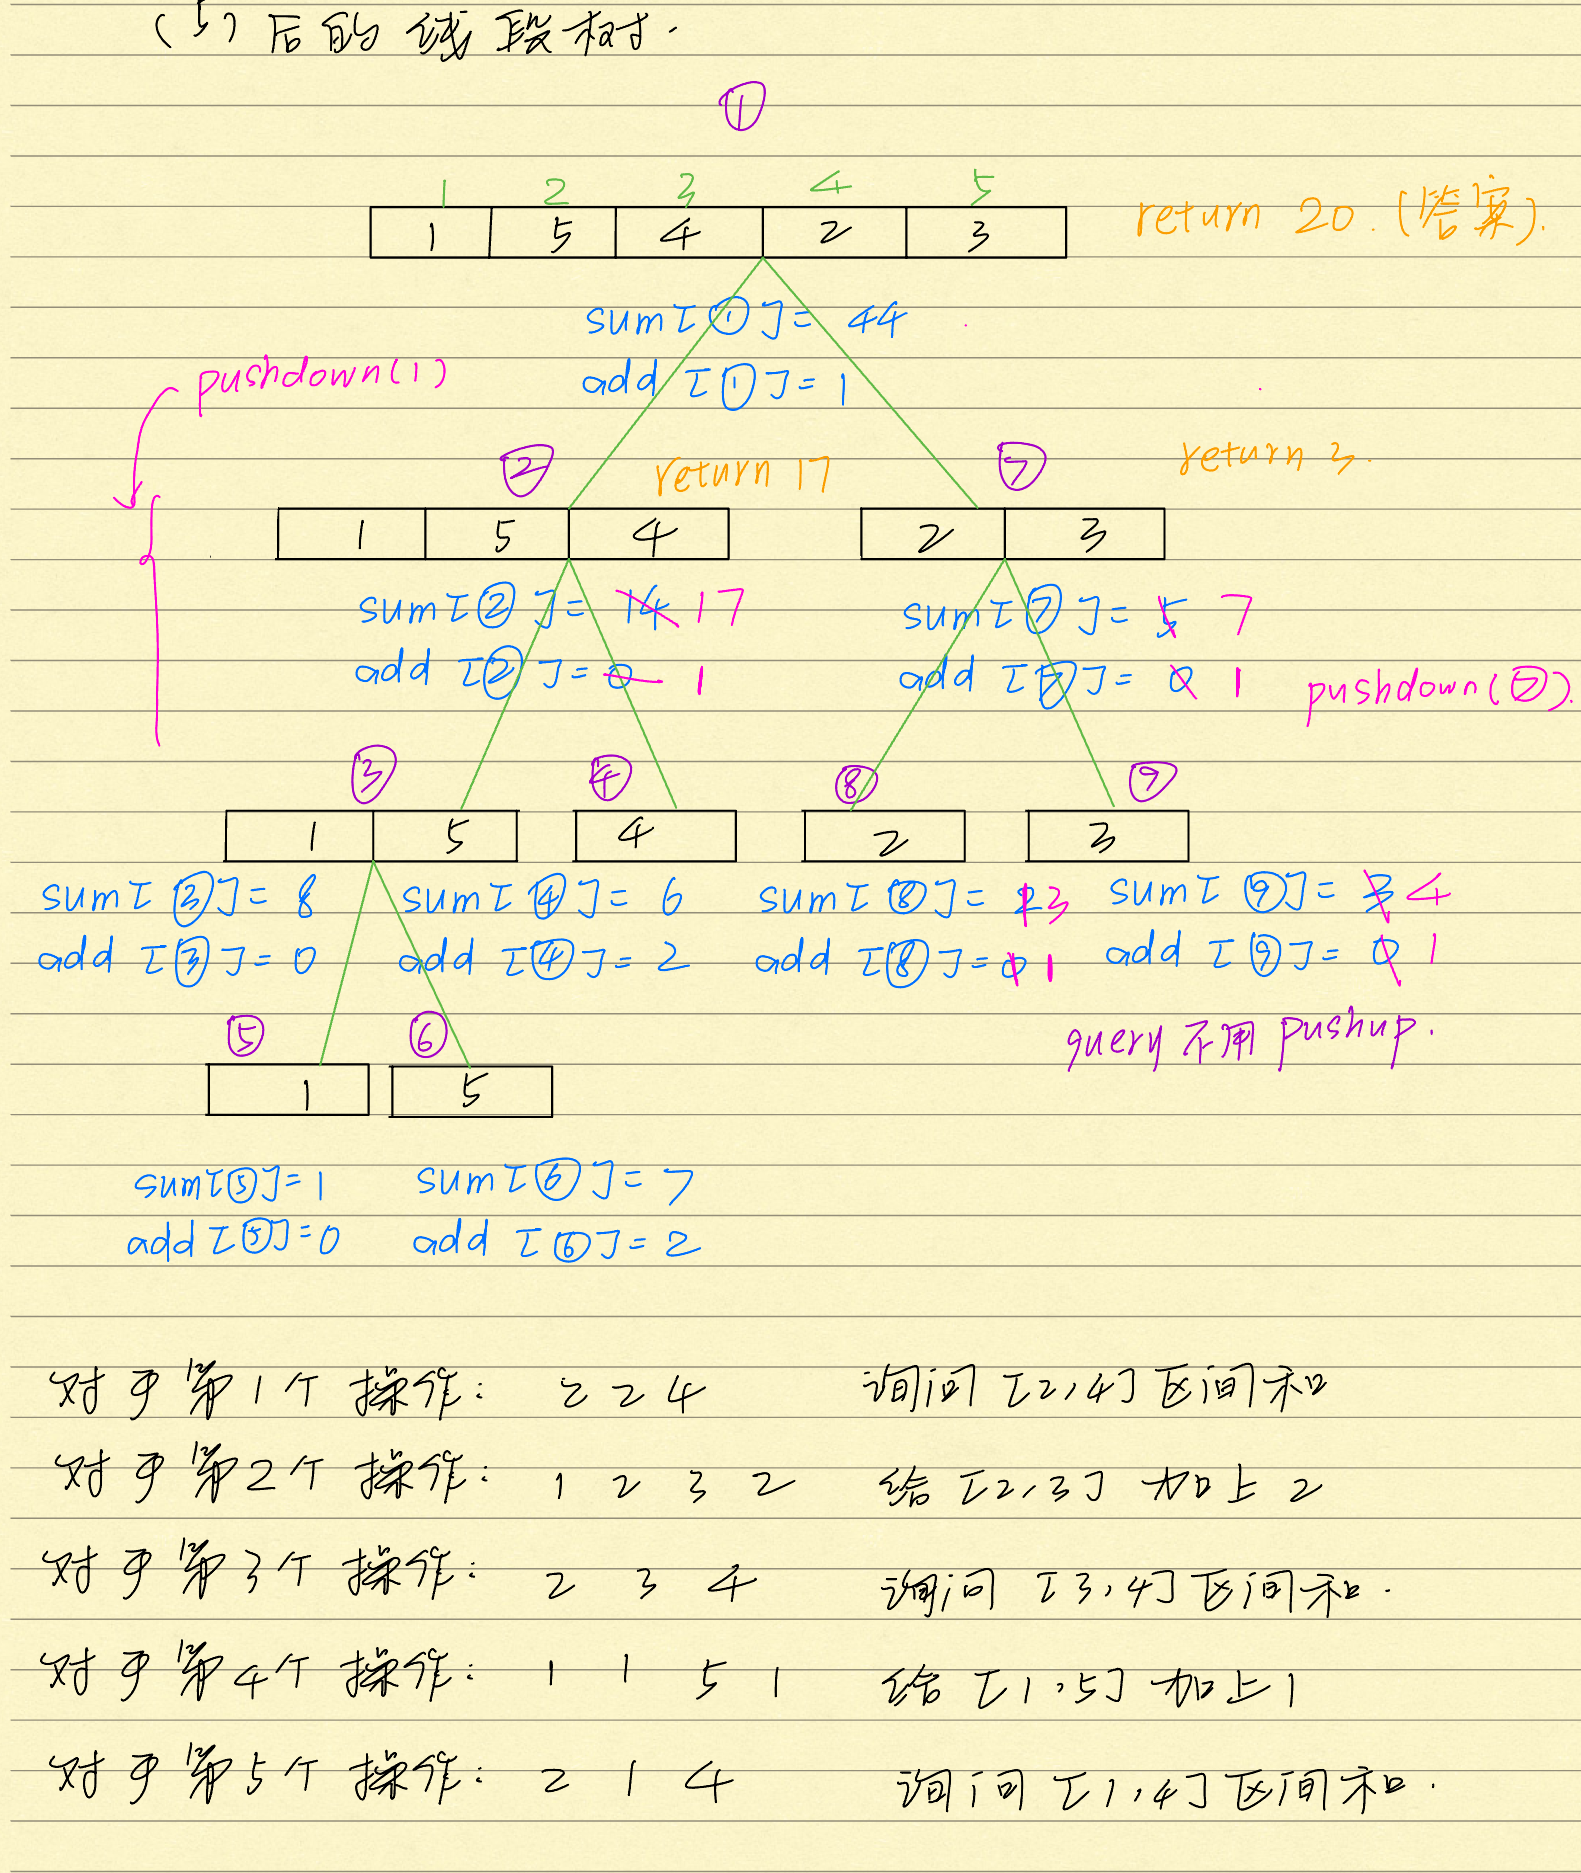 (5)后的线段树.
①
1 2 3 4 5
1 5 4 2 3
return 20.(答案).
sum[①]= 44
add [①]= 1
pushdown(1)
② return 17 ⑦ return 3.
1 5 4 2 3
sum[②]= 14 17 sum[⑦]= 5 7
add [②]= 0 1 add [⑦]= 0 1 pushdown(⑦).
③ ④ ⑧ ⑨
1 5 4 2 3
sum[③]= 8 sum[④]= 6 sum[⑧]= 2 3 sum[⑨]= 3 4
add [③]= 0 add [④]= 2 add [⑧]= 0 1 add [⑨]= 0 1
⑤ ⑥ query 不用 pushup.
1 5
sum[⑤]=1 sum[⑥]= 7
add[⑤]=0 add [⑥]= 2
对于第1个操作: 2 2 4 询问[2,4]区间和
对于第2个操作: 1 2 3 2 给[2,3]加上2
对于第3个操作: 2 3 4 询问[3,4]区间和.
对于第4个操作: 1 1 5 1 给[1,5]加上1
对于第5个操作: 2 1 4 询问[1,4]区间和.